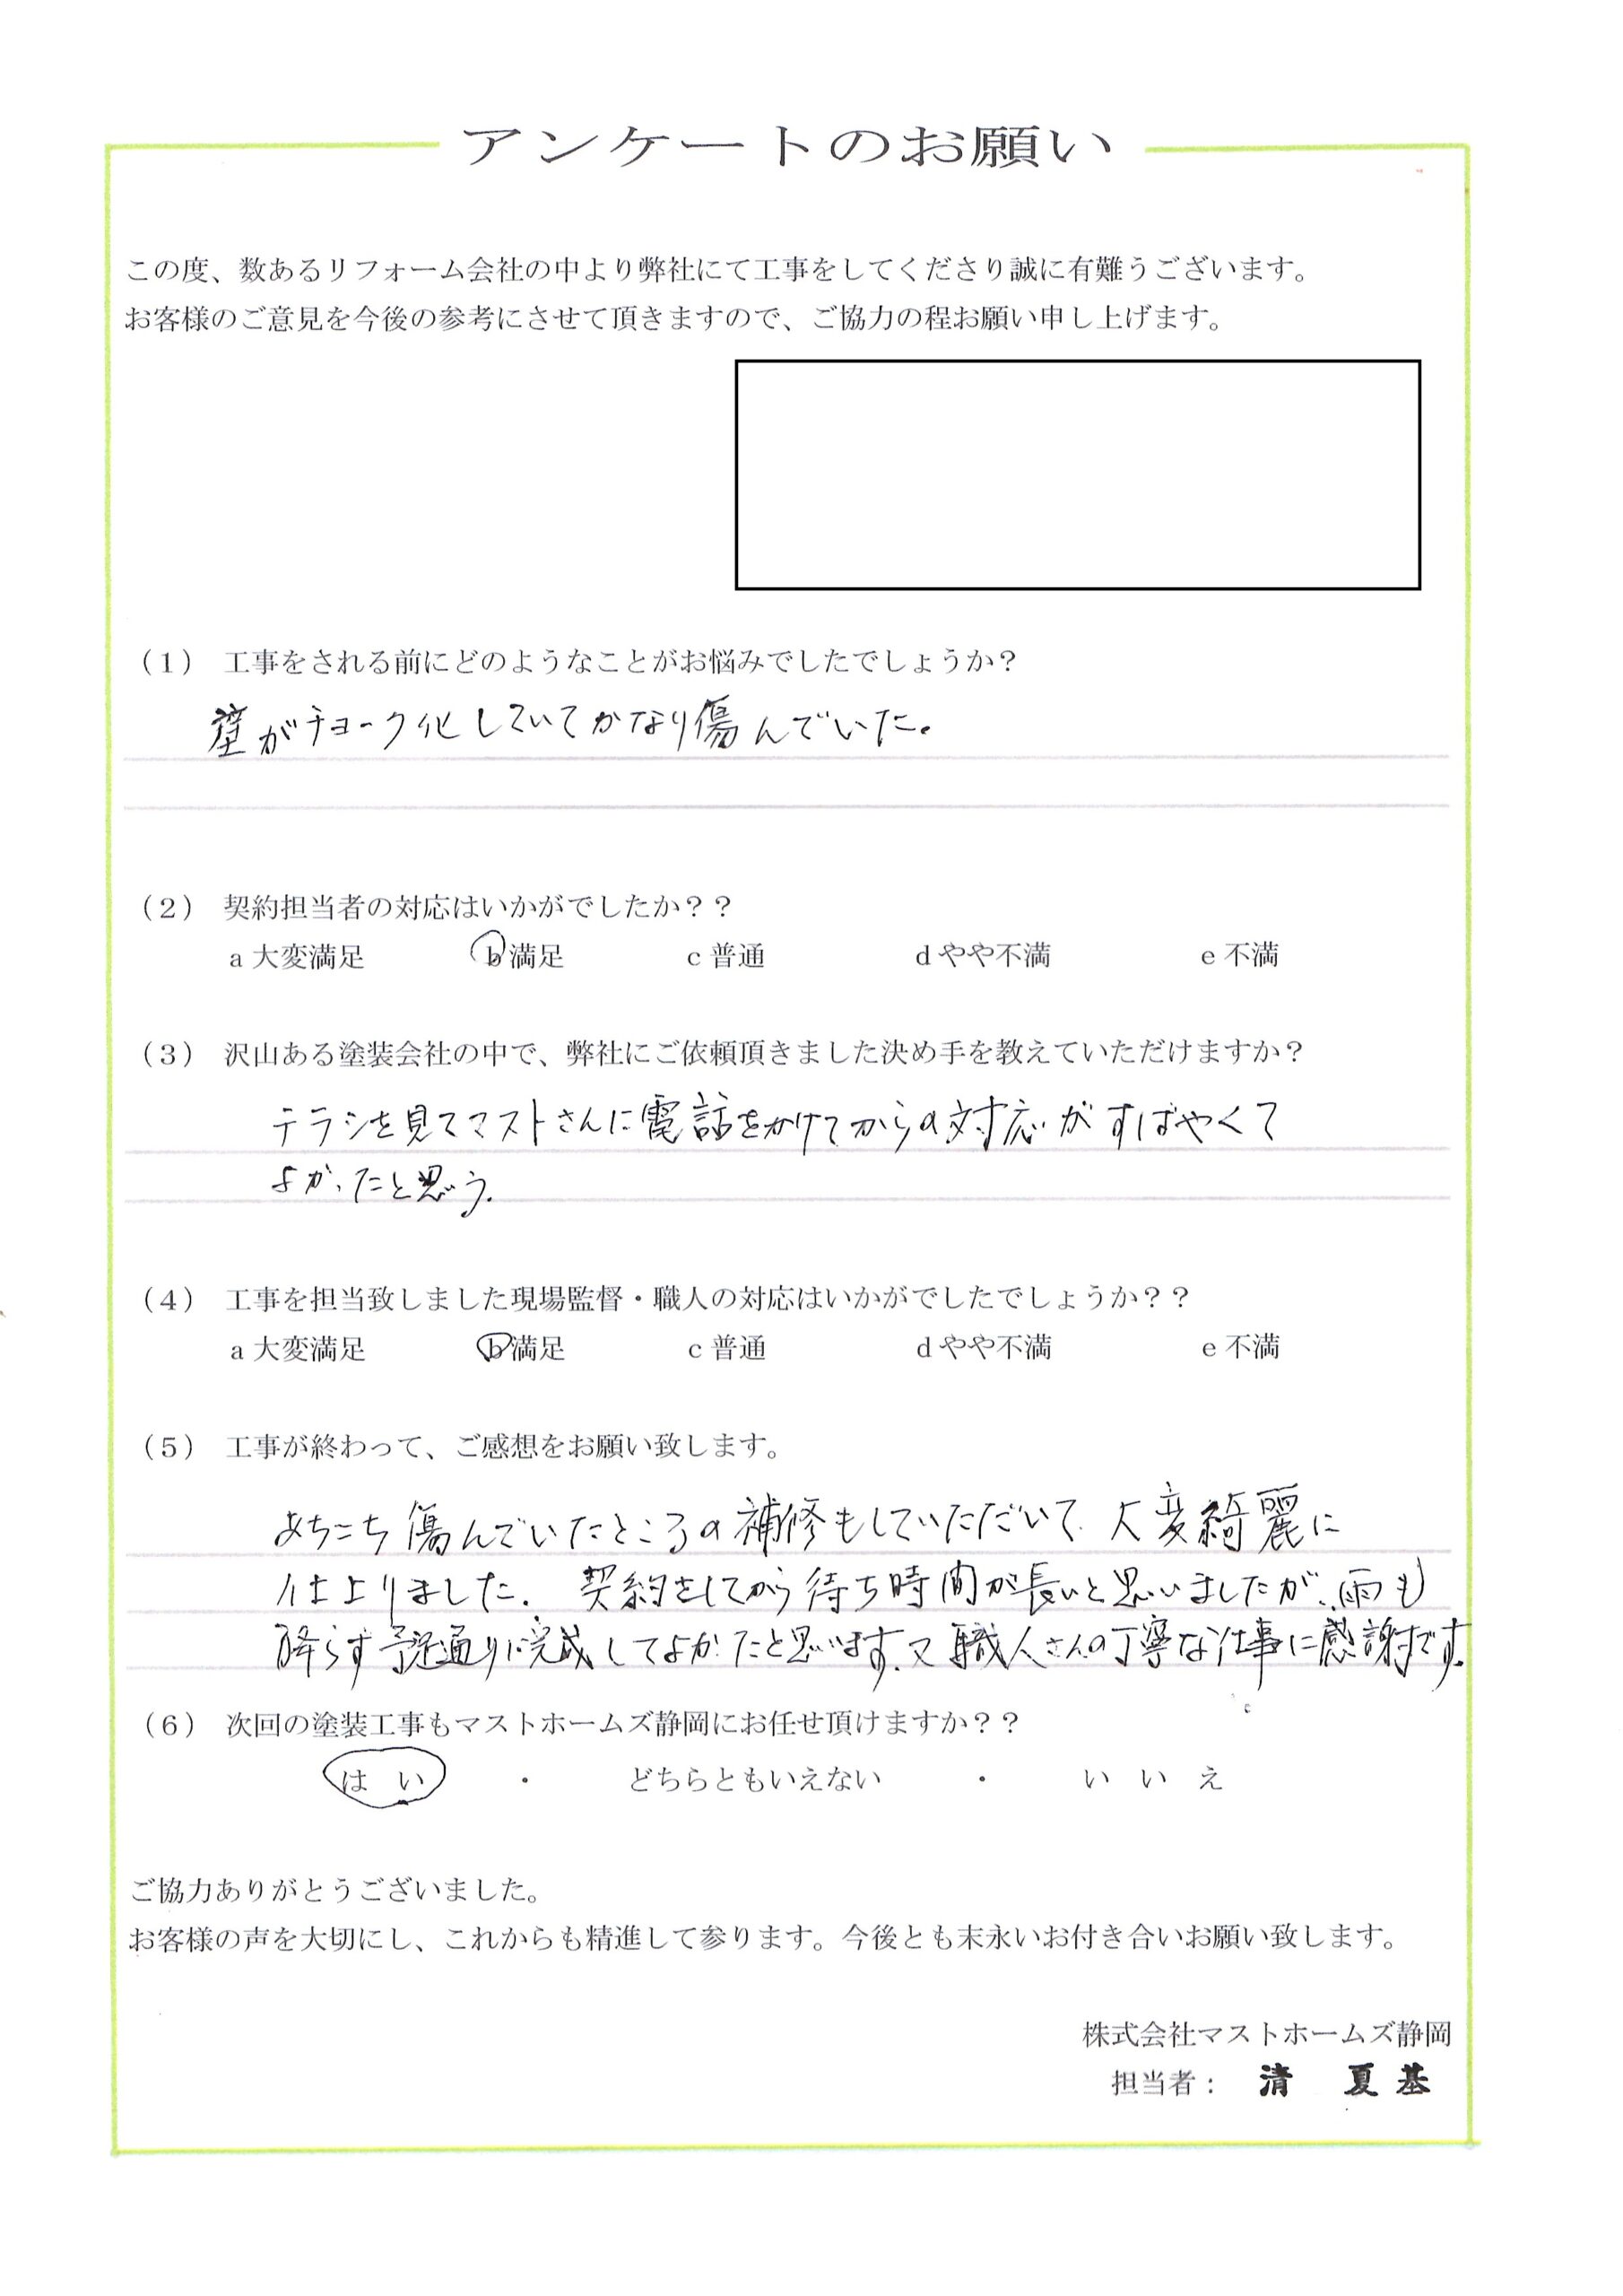 アンケートのお願い
この度、数あるリフォーム会社の中より弊社にて工事をしてくださり誠に有難うございます。
お客様のご意見を今後の参考にさせて頂きますので、ご協力の程お願い申し上げます。
(1) 工事をされる前にどのようなことがお悩みでしたでしょうか？
壁がチョーク化していてかなり傷んでいた。
(2) 契約担当者の対応はいかがでしたか？？
a 大変満足 b 満足 c 普通 d やや不満 e 不満
(3) 沢山ある塗装会社の中で、弊社にご依頼頂きました決め手を教えていただけますか？
チラシを見てマストさんに電話をかけてからの対応がすばやくて
よかったと思う。
(4) 工事を担当致しました現場監督・職人の対応はいかがでしたでしょうか？？
a 大変満足 b 満足 c 普通 d やや不満 e 不満
(5) 工事が終わって、ご感想をお願い致します。
あちこち傷んでいたところの補修もしていただいて、大変綺麗に
仕上りました。契約をしてから待ち時間が長いと思いましたが、雨も
降らず予定通りに完成してよかったと思います。又職人さんの丁寧な仕事に感謝です。
(6) 次回の塗装工事もマストホームズ静岡にお任せ頂けますか？？
はい ・ どちらともいえない ・ いいえ
ご協力ありがとうございました。
お客様の声を大切にし、これからも精進して参ります。今後とも末永いお付き合いお願い致します。
株式会社マストホームズ静岡
担当者： 清 夏基